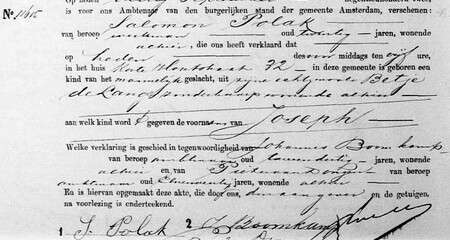 is voor ons Ambtenaar van den burgerlijken stand der gemeente Amsterdam, verschenen:
No. Salomon Polak
van beroep werkman oud twintig jaren, wonende
alhier, die ons heeft verklaard dat
op heden des voor middags ten vijf ure,
in het huis Korte Houtstraat 72 in deze gemeente is geboren een
kind van het mannelijk geslacht, uit zijne echtgenoote Betje
de Lang zonder beroep wonende alhier
aan welk kind gegeven de voornaam van Joseph
Welke verklaring is geschied in tegenwoordigheid van Johannes Boomkamp
van beroep ambtenaar oud jaren, wonende
alhier en van Pieter van Dongen van beroep
ambtenaar oud jaren, wonende alhier
En is hiervan opgemaakt deze akte, die door ons, den aangever en de getuigen,
na voorlezing is onderteekend.
1 S. Polak 2 J. Boomkamp